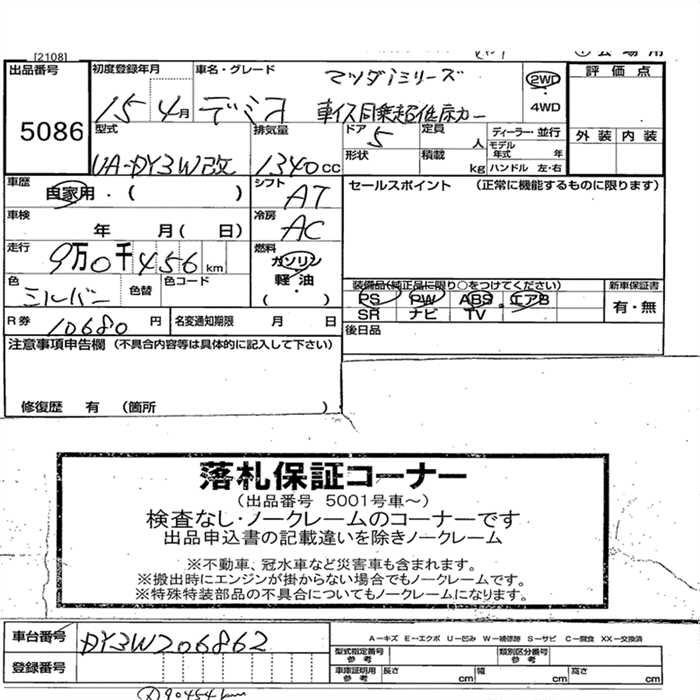 [2108]
出品番号 初度登録年月 車名・グレード マツダ iシリーズ 2WD 評価点
5086 15 4月 デミオ 車イス同乗超低床カー ・ 4WD
型式 排気量 ドア 5 定員 人 ディーラー・並行 外装 内装
UA-DY3W改 1340cc 形状 積載 kg モデル年式 年 ハンドル 左・右
車歴 自家用・( ) シフト AT セールスポイント (正常に機能するものに限ります)
車検 年 月(日) 冷房 AC
走行 9万0千456km 燃料 ガソリン・軽油・( )
色 シルバー 色替 色コード
装備品(純正品に限り○をつけてください) 新車保証書
PS PW ABS エアB 有・無
SR ナビ TV
R券 10680円 名変通知期限 月 日 後日品
注意事項申告欄 (不具合内容等は具体的に記入して下さい)
修復歴 有 (箇所 )
落札保証コーナー
(出品番号 5001号車〜)
検査なし・ノークレームのコーナーです
出品申込書の記載違いを除きノークレーム
※不動車、冠水車など災害車も含まれます。
※搬出時にエンジンが掛からない場合でもノークレームです。
※特殊特装部品の不具合についてもノークレームになります。
車台番号 DY3W206862
A-キズ E-エクボ U-凹み W-補修跡 S-サビ C-腐食 XX-交換済
型式指定番号 参考 類別区分番号 参考
登録番号 車庫証明用 参考 長さ cm 幅 cm 高さ cm
90454km